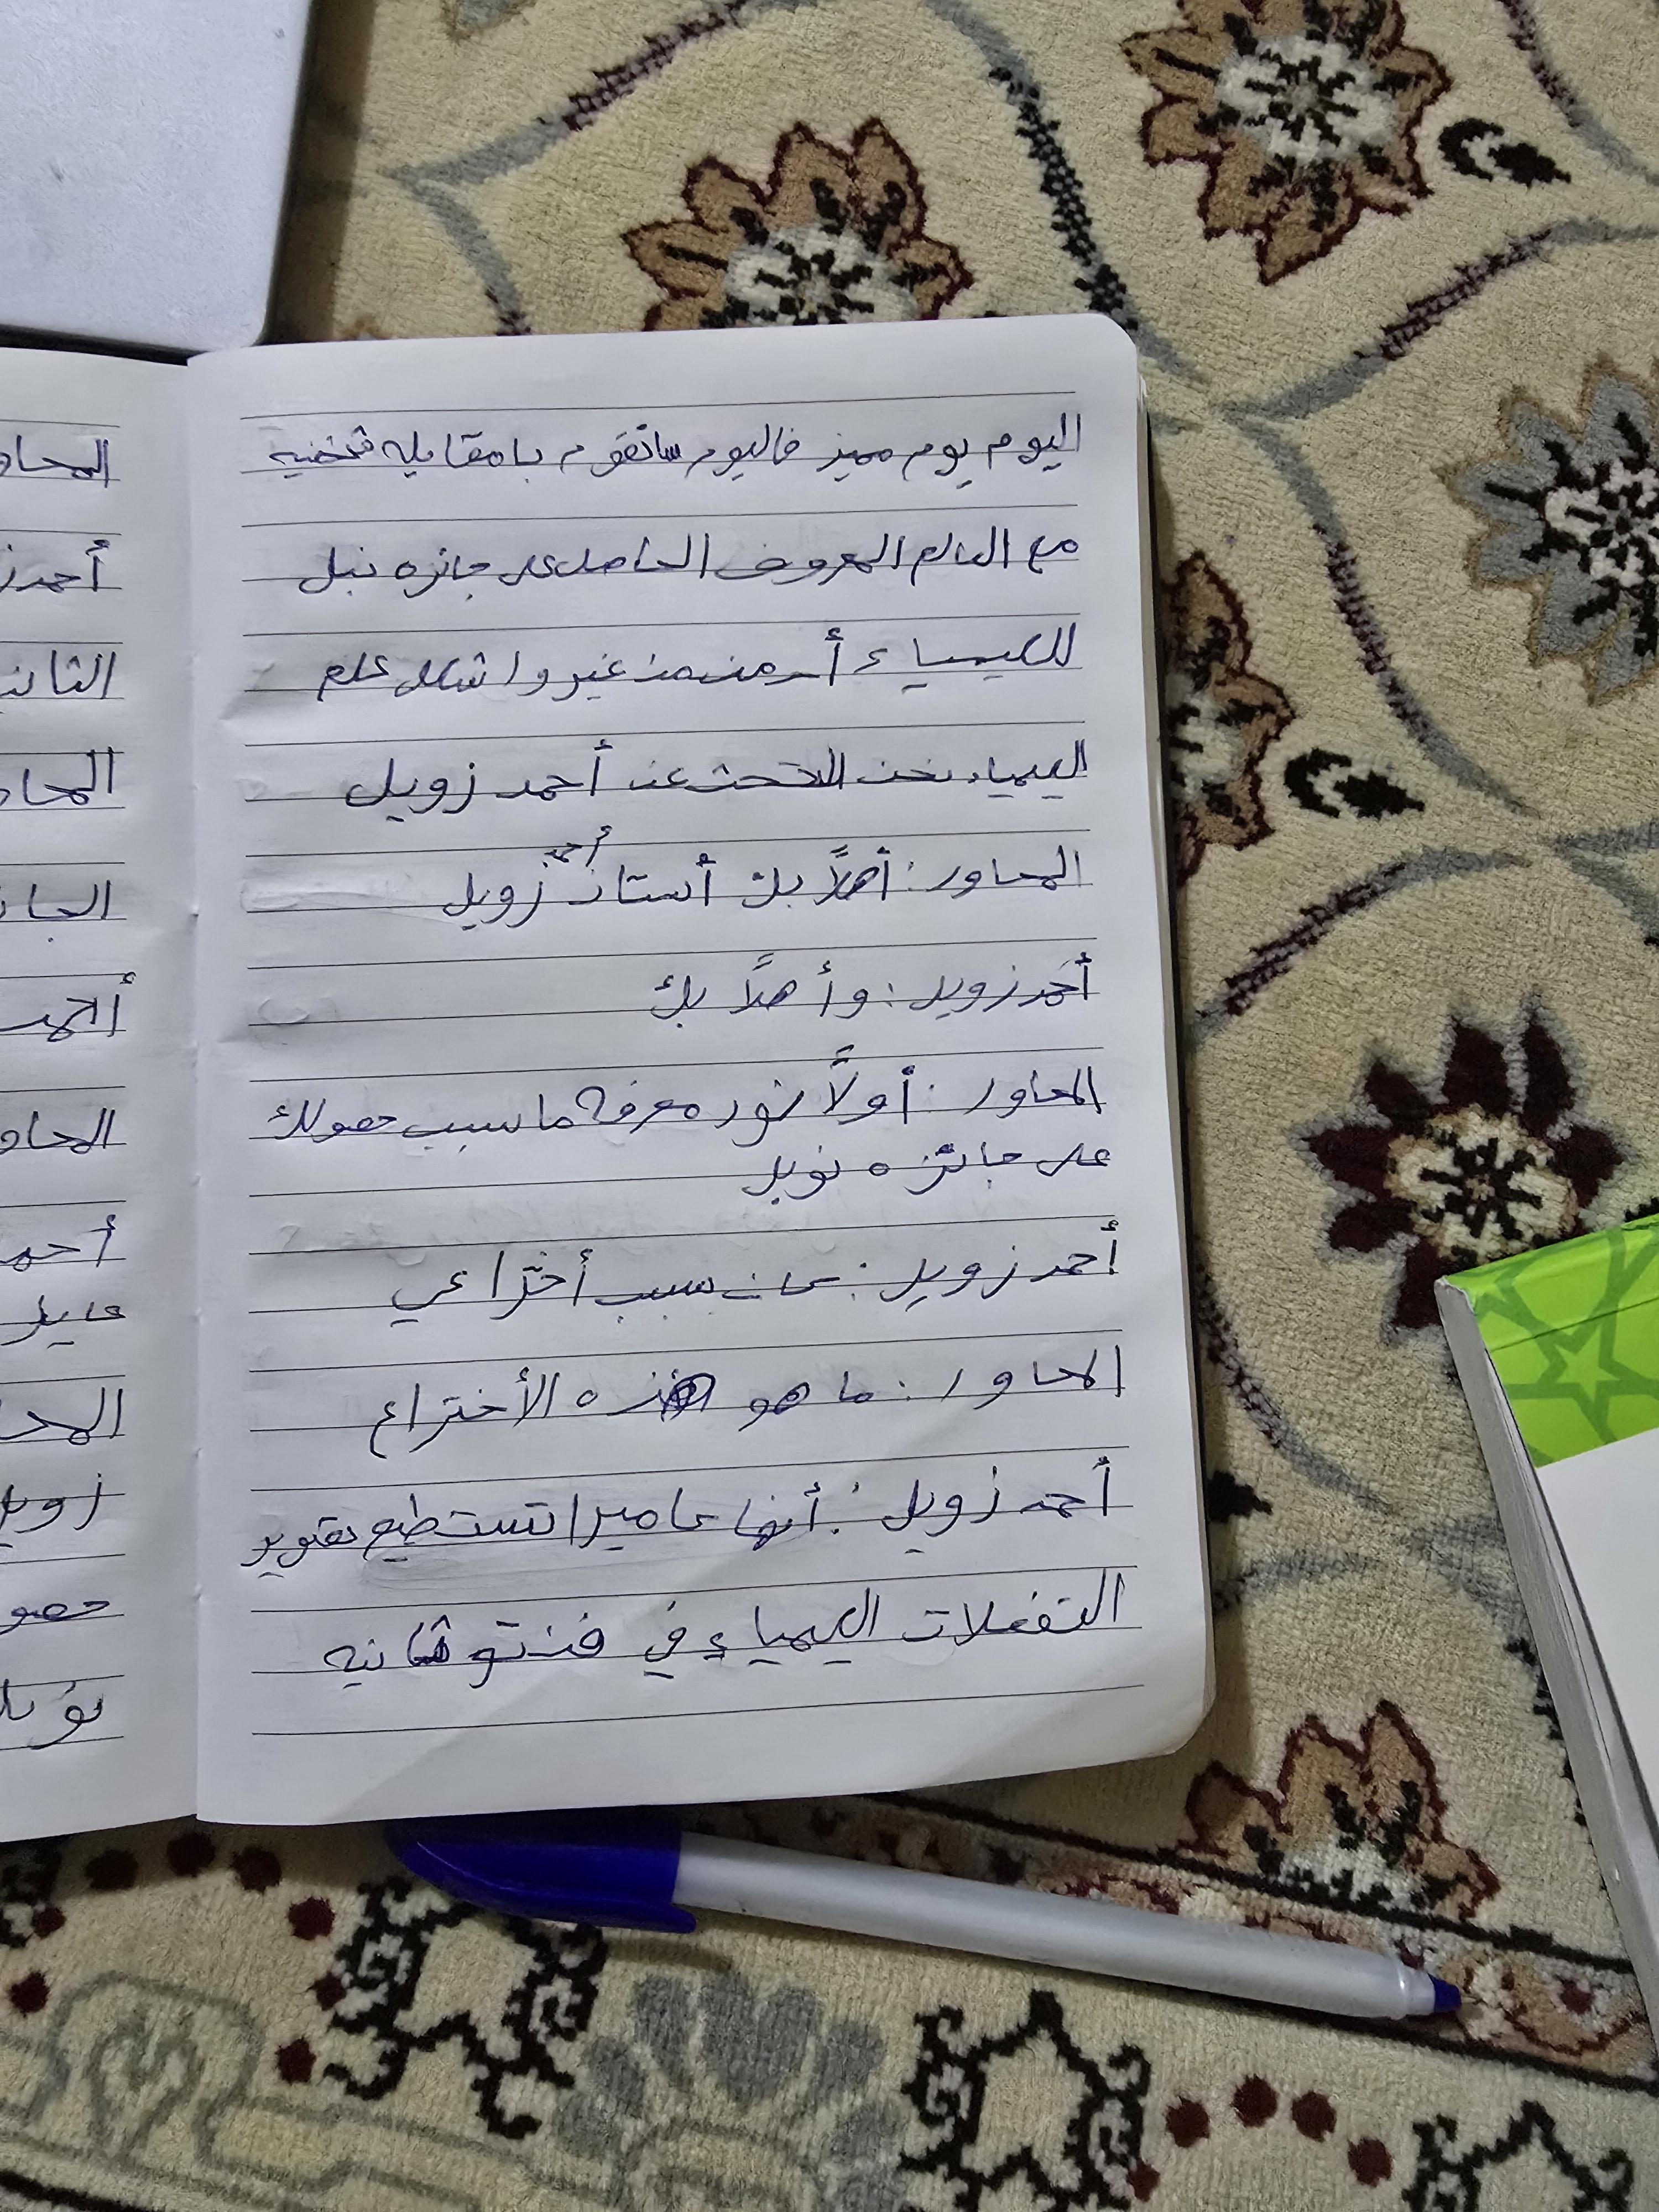 اليوم يوم مميز فاليوم سأتقوم بامقابله شخصيه
مع العالم المعروف الحاصل على جائزه نبل
للكيمياء أحد من من غير واشكل علم
الكيمياء نحن نتحدث عن أحمد زويل
المحاور: أهلاً بك أستاذ أحمد زويل
أحمد زويل: وأهلاً بك
المحاور: أولاً نود معرفة ما سبب حصولك
على جائزه نوبل
أحمد زويل: كان بسبب أختراعي
المحاور: ما هو هذه الأختراع
أحمد زويل: أنها كاميرا تستطيع تصوير
التفعلات الكيمياء في فمتو ثانيه
المحاو
أحمد ز
الثان
المحا
الجا
أحمد
المحاو
أحمد
المحا
زويل
حصو